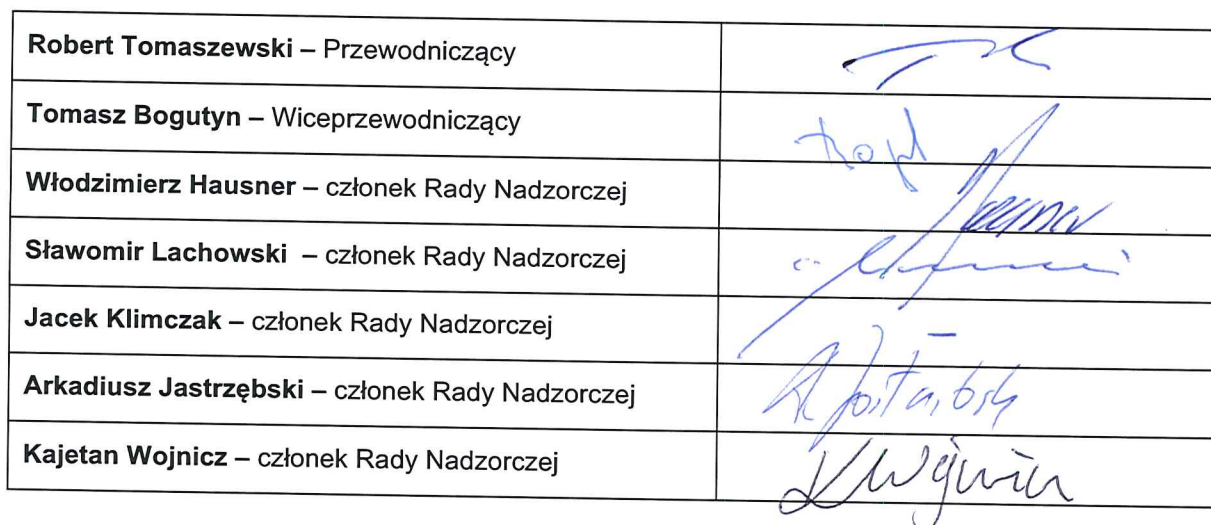 Robert Tomaszewski – Przewodniczący
Tomasz Bogutyn – Wiceprzewodniczący
Włodzimierz Hausner – członek Rady Nadzorczej
Sławomir Lachowski – członek Rady Nadzorczej
Jacek Klimczak – członek Rady Nadzorczej
–
Arkadiusz Jastrzębski – członek Rady Nadzorczej
Kajetan Wojnicz – członek Rady Nadzorczej